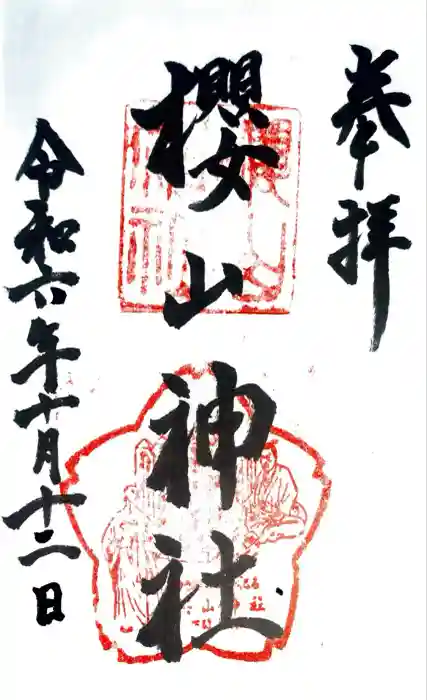 奉拝
櫻山神社
令和六年十月十二日